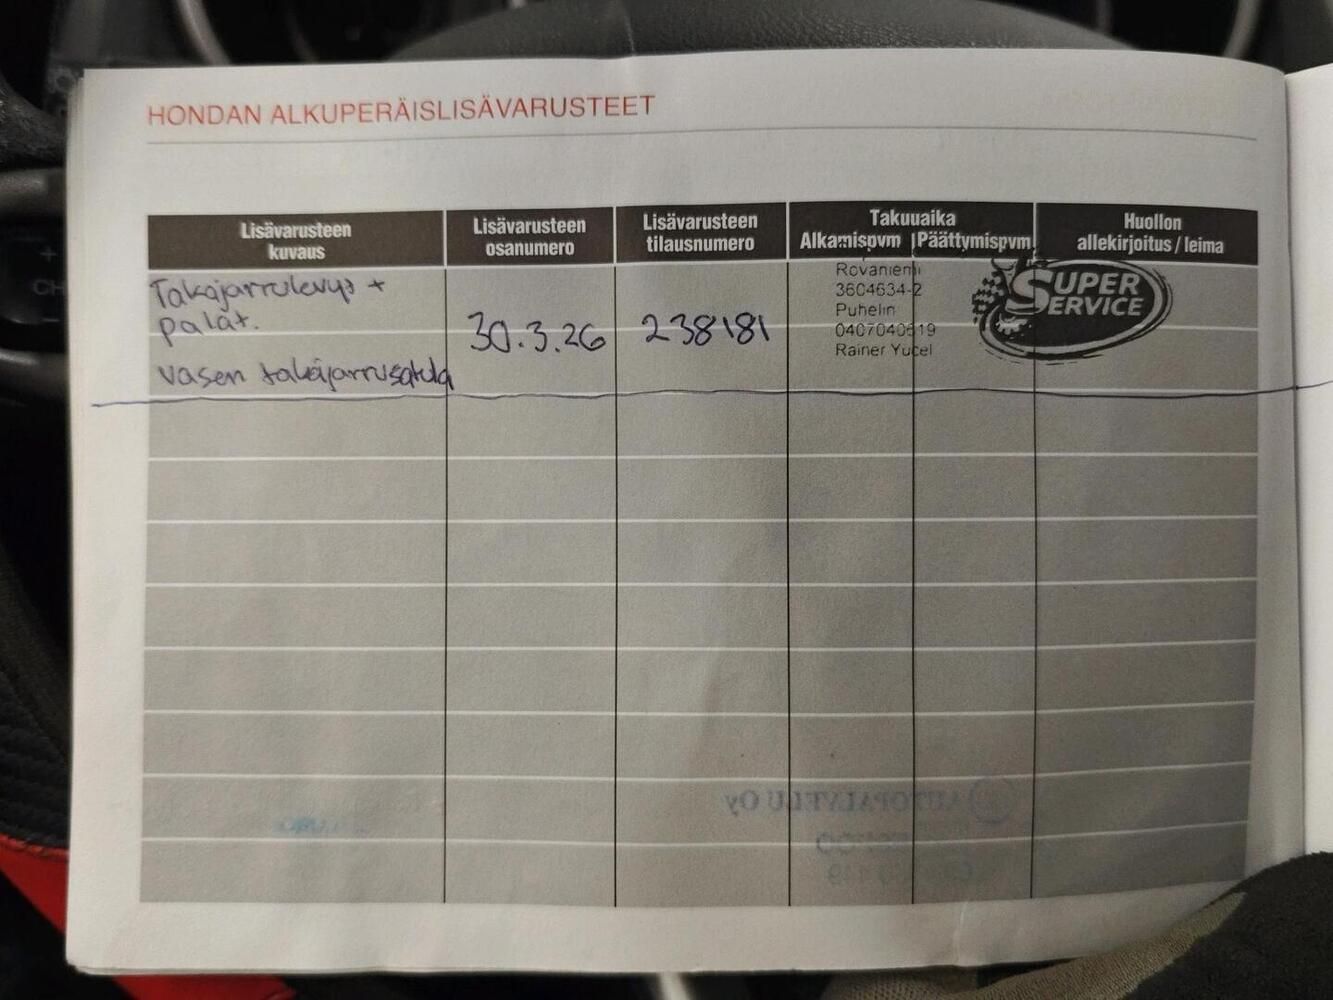 HONDAN ALKUPERÄISLISÄVARUSTEET
Lisävarusteen kuvaus
Lisävarusteen osanumero
Lisävarusteen tilausnumero
Takuuaika
Alkamispvm
Päättymispvm
Huollon allekirjoitus / leima
Takajarrulevyt +
palat.
30.3.26
238181
vasen takajarrusatula
Rovaniemi
3604634-2
Puhelin
0407040619
Rainer Yücel
SUPER
SERVICE
AUTOPALVELU Oy